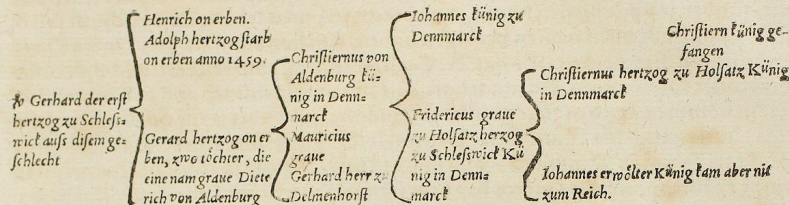 Gerhard der erst
hertzog zu Schleß=
wick auss disem ge=
schlecht
Henrich on erben.
Adolph hertzog starb
on erben anno 1459.
Gerard hertzog on er
ben, zwo töchter, die
eine nam graue Diete
rich von Aldenburg
Christiernus von
Aldenburg kü=
nig in Denn=
marck
Mauricius
graue
Gerhard herr zu
Delmenhorst
Iohannes künig zu
Dennmarck
Fridericus graue
zu Holsatz herzog
zu Schleswick Kü
nig in Denn=
marck
Christiern künig ge=
fangen
Christiernus hertzog zu Holsatz Künig
in Dennmarck
Iohannes erwölter Künig kam aber nit
zum Reich.